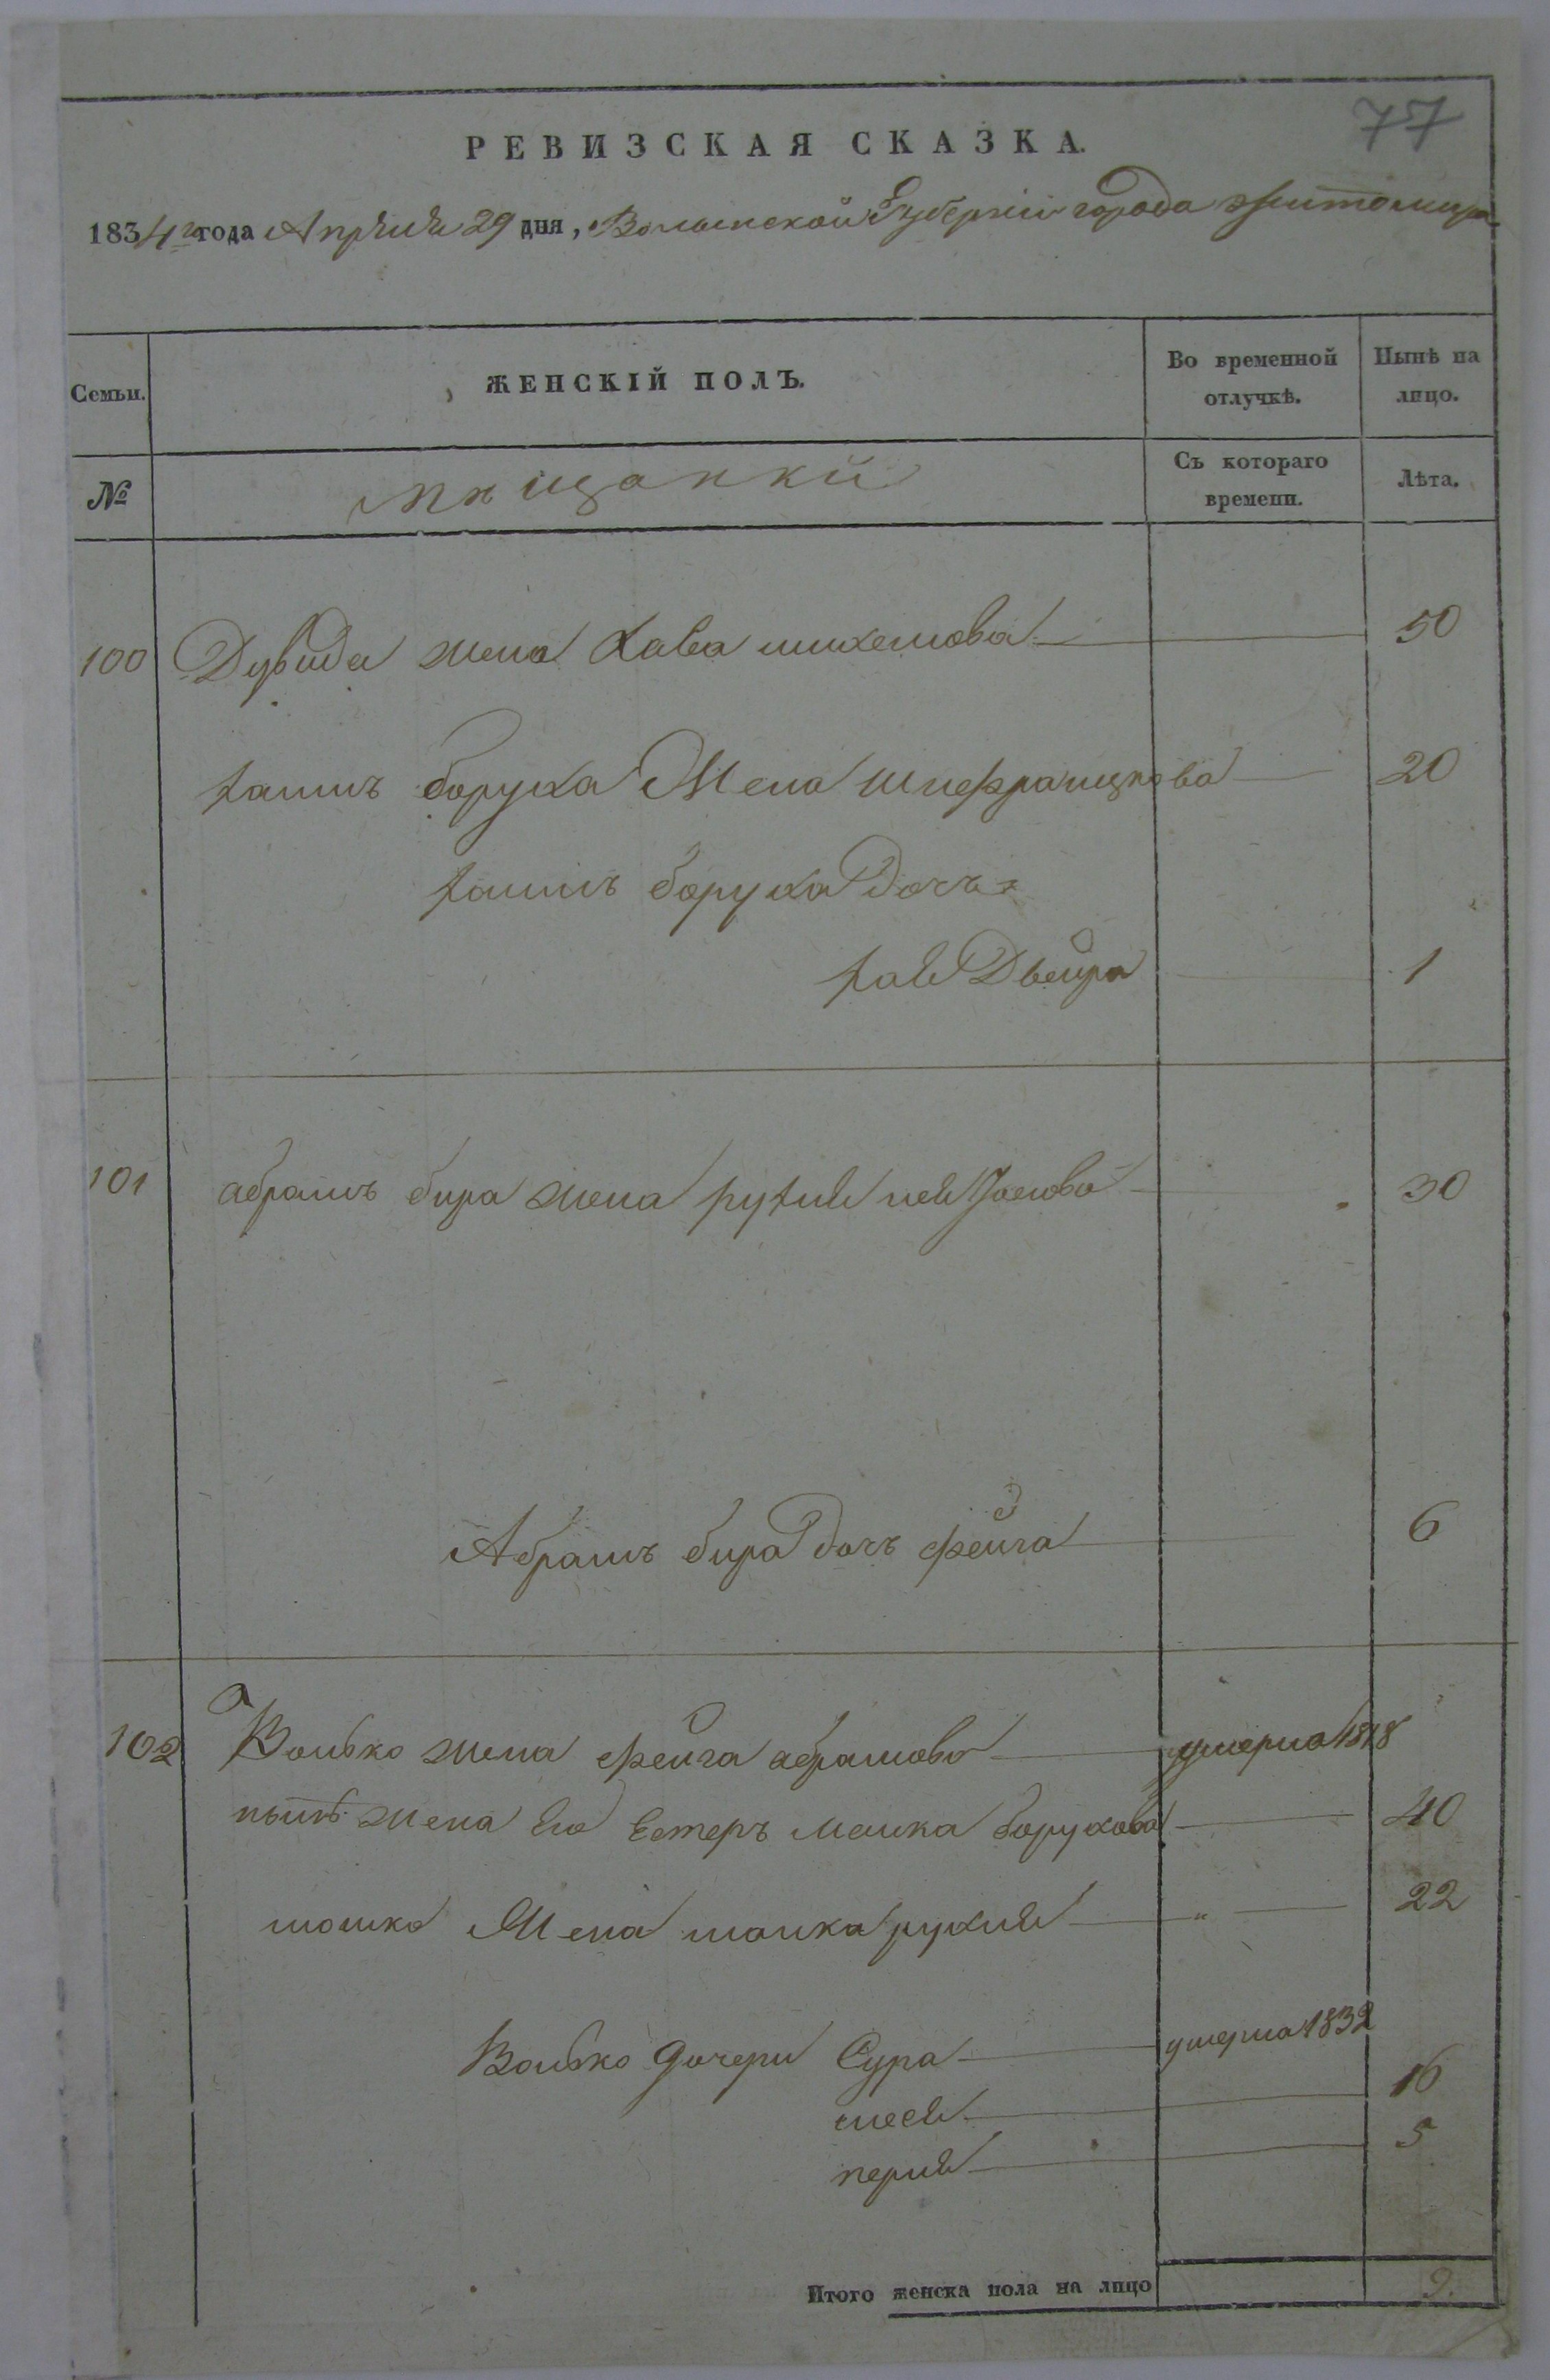 77
РЕВИЗСКАЯ СКАЗКА.
1834го года Апреля 29 дня, Волынской Губернии города Житомира
Семьи. ЖЕНСКІЙ ПОЛЪ. Во временной отлучкѣ. Нынѣ на лицо.
№ мѣщанки Съ котораго времени. Лѣта.
100 Дувида жена Хава 50
боруха Жена 20
боруха дочь
Двейра 1
101 абрамъ бера жена 30
Абрамъ бера дочь фейга 6
102 Волько жена фейга абрамова умерла 1818
нынѣ жена его Естеръ малка борухова 40
мошко Жена рухля " 22
Волько дочери Сура умерла 1832
16
перля 5
Итого женска пола на лицо 9.